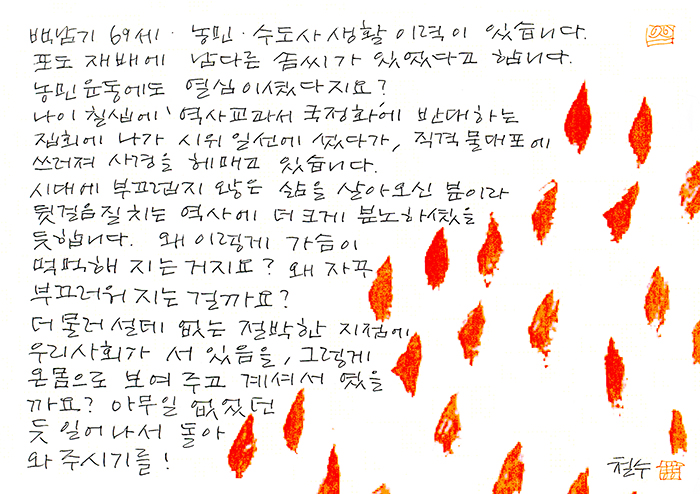 백남기 69세 · 농민 · 수도사 생활 이력이 있습니다.
포도 재배에 남다른 솜씨가 있었다고 합니다.
농민운동에도 열심이셨다지요?
나이 칠십에 '역사교과서 국정화'에 반대하는
집회에 나가 시위 일선에 섰다가, 직격 물대포에
쓰러져 사경을 헤매고 있습니다.
시대에 부끄럽지 않은 삶을 살아오신 분이라
뒷걸음질 치는 역사에 더 크게 분노하셨을
듯합니다. 왜 이렇게 가슴이
먹먹해 지는거지요? 왜 자꾸
부끄러워 지는 걸까요?
더 물러설데 없는 절박한 지점에
우리사회가 서 있음을, 그렇게
온몸으로 보여 주고 계셔서 였을
까요? 아무일 없었던
듯 일어나서 돌아
와 주시기를!
철수